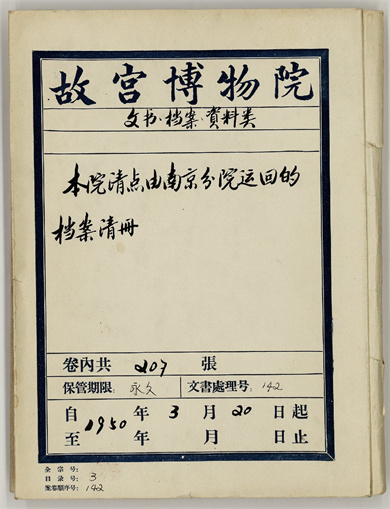 故宫博物院
文书·档案·資料类
本院清点由南京分院运回的
档案清册
卷內共 207 張
保管期限: 永久 文書處理号: 142
自 1950 年 3 月 20 日 起
至 年 月 日 止
全宗号:
目录号: 3
案卷顺序号: 142